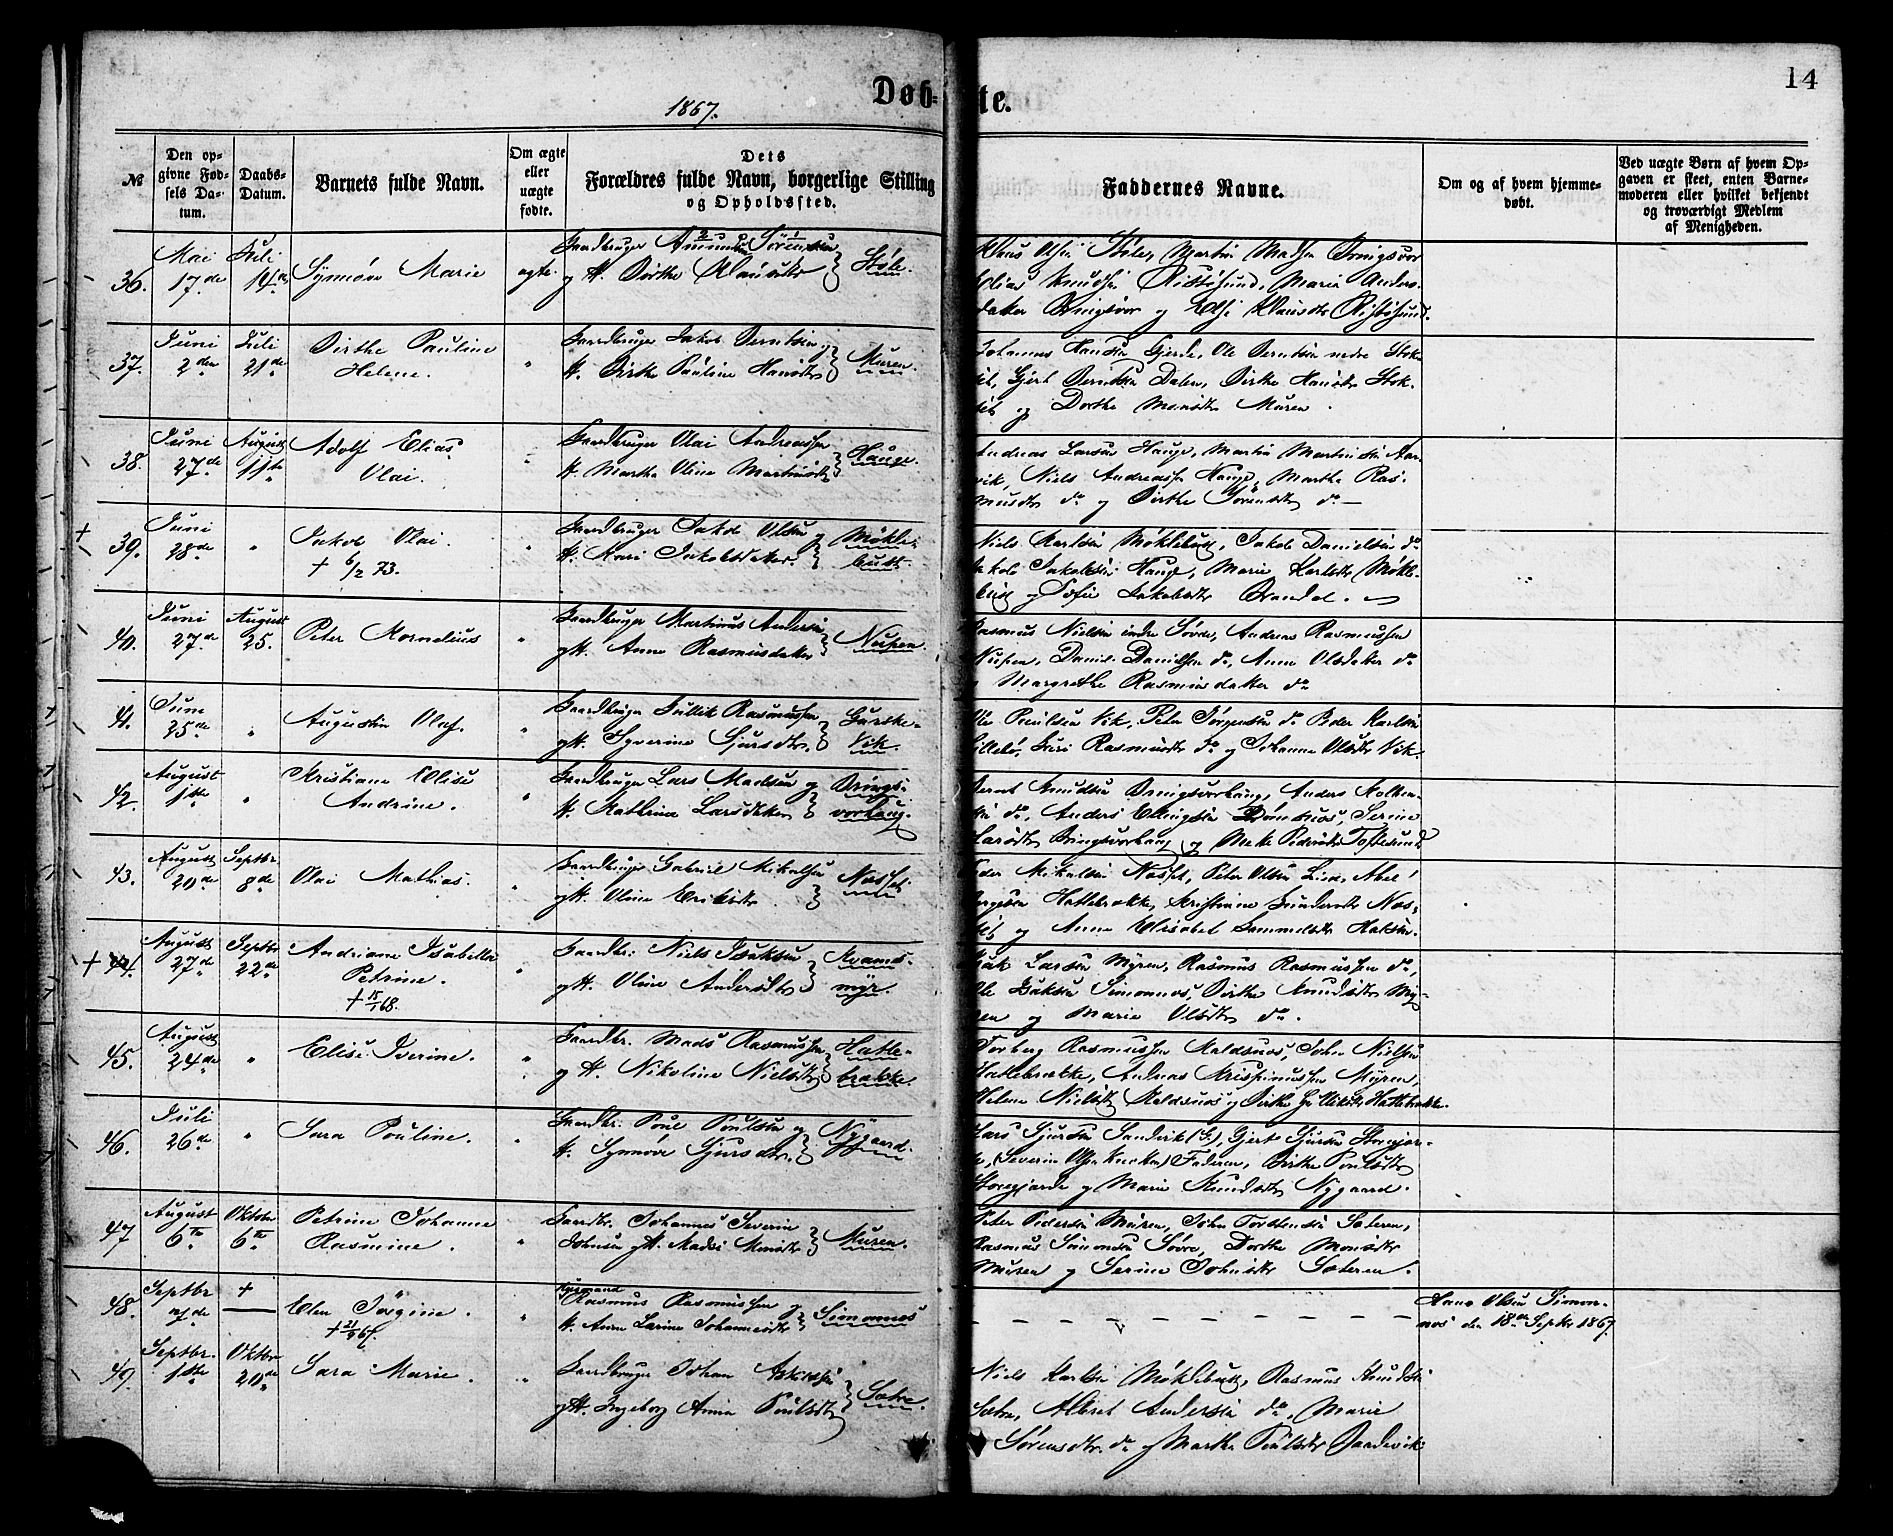 14
1867.
Døbte.
№
Den opgivne Fødsels Datum.
Daabs-Datum.
Barnets fulde Navn.
Om ægte eller uægte fødte.
Dets Forældres fulde Navn, borgerlige Stilling og Opholdssted.
Faddernes Navne.
Om og af hvem hjemmedøbt.
Ved uægte Børn af hvem Opgaven er skeet, enten Barnemoderen eller hvilket bekjendt og troværdigt Medlem af Menigheden.
36. Mai 17de Juli 14de Synnøve Marie ægte.
Gaardbruger Sørensen
og H. Birthe Klausdtr Støle.
Olsen Støle, Martin Madsen Bringsvor
Elias Knudsen Ristesund, Marie Anders-
datter Bringsvor og Else Klausdtr Ristesund.
37. Juni 2den Juli 21de Birthe Pauline Helene. "
Gaardbruger Jakob Berntsen og
H. Birthe Pauline Hansdtr Muren.
Johannes Hansen Gjerde, Ole Berntsen nedre Stok-
set, Gjert Berntsen Dalen, Birthe Hansdtr Stok-
set og Dorthe Monsdtr Muren.
38. Juni 27de August 11te Adolf Elias Olai. "
Gaardbruger Olai Andreassen
H. Martha Oline Martinsdtr Hauge.
Andreas Larsen Hauge, Martin Martinsen Aar-
vik, Niels Andreassen Hauge, Marthe Ras-
musdtr do og Birthe Sørensdtr do —
+ 39. Juni 28de " Jakob Olai. "
+ 6/2 73.
Gaardbruger Jakob Olsen og
H. Kari Jakobsdatter. Møklebust.
Niels Karlsen Møklebust, Jakob Danielsen do
Jakob Jakobsen Hauge, Marie Karlsdtr Møkle-
bust og Sofie Jakobsdtr Brandal.
40. Juni 27de August 25. Peter Kornelius "
Gaardbruger Martinus Andersen
og H. Anne Rasmusdatter Nupen.
Rasmus Nielsen indre Søvde, Andreas Rasmussen
Nupen, Daniel Danielsen do, Anne Olsdatter do
Margrethe Rasmusdatter do
41. Juni 25de " Augustin Olaf. "
Gaardbruger Gullik Rasmussen
og H. Syverine Sjursdtr. Gurske-
Vik.
Ole Paulsen Vik, Peter Jørgensen do Peder Karlsen
Lillebø, Guri Rasmusdtr do og Johanne Olsdtr Vik.
42. August 1ste " Kristiane Elise Andrine. "
Gaardbruger Lars Madsen og
H. Kathrine Larsdatter Brings-
vorhaug.
Bernt Knudsen Bringsvorhaug, Anders
do, Anders Ellingsen Rømsnes, Serine
Larsdtr Bringsvorhaug og Pedersdtr Toftesund
43. August 20de Septbr. 8de Olai Mathias. "
Gaardbruger Gabriel Mikalsen
og H. Oline Eriksdtr. Nosset.
Peder Mikalsen Nosset, Peter Olsen Lied, Abel
Hatlebrække, Kristiane Gundersdtr Nos-
set og Anne Elisabet Sammelsdtr
+ 44. August 27de Septbr 22de Andriane Isabella Petrine. "
+ 15/1 68.
Gaardbr. Niels Isaksen
og H. Oline Andersdtr Kvams-
myr.
Isak Larsen Myren, Rasmus Rasmussen do,
Ole Isaksen Simonnes, Birthe Knudsdtr Myr-
en og Marie Olsdtr do.
45. August 24de " Elise Iverine. "
Gaardbr. Mads Rasmussen
og H. Nikoline Nielsdtr Hatle-
brække.
Torberg Rasmussen Koldsnes, John Nielsen
Hatlebrække, Andreas Krispinussen Myren,
Helene Nielsdtr Koldsnes og Birthe Gulliksdtr Hatlebrække.
46. Juli 26de " Sara Pouline. "
Gaardbr. Poul Poulsen og
H. Synnøve Sjursdtr. Nygaard.
Lars Sjursen Sandvik (S.), Gjert Sjursen Storegjær-
de, (Severin Olsen Knekken) Faderen, Birthe Poulsdtr
Storegjærde og Marie Knudsdtr Nygaard.
47 August 6te Oktober 6te Petrine Johanne Rasmine. "
Gaardbr. Johannes Severin
Johnsen og H. Madsi Monsdtr Muren.
Peter Pedersen Muren, John Torstensen Sæteren,
Rasmus Simonsen Søvre, Dorthe Monsdtr
Muren og Serine Johnsdtr Sæteren.
48. Septbr 7de + — Elen Jørgine. "
+ 21/9 67.
Husmand Rasmus Rasmussen og
H. Anne Larine Johannesdtr Simonnes
— — — — —
Hans Olsen Simon-
nes den 18de Septbr 1867.
49. Septbr. 1ste Oktbr 20de Sara Marie. "
Gaardbruger Johan
og H. Ingeborg Anna Poulsdtr Sætre.
Niels Karlsen Møklebust, Rasmus Knudsen
Sætre, Albert Andersen do, Marie
Sørensdtr. do og Marthe Poulsdtr Saudevik